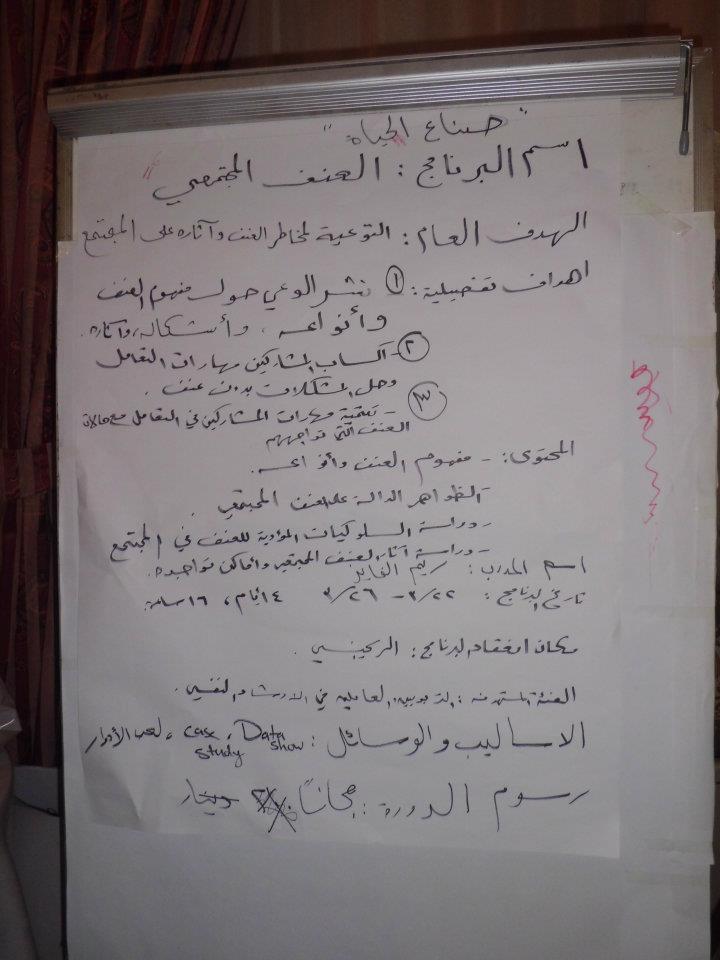 "صناع الحياة"
اسم البرنامج: العنف المجتمعي
الهدف العام: التوعية لمخاطر العنف وآثاره على المجتمع
اهداف تفصيلية: ① نشر الوعي حول مفهوم العنف
وأنواعه، وأشكاله، وآثاره.
② - اكساب المشاركين مهارات التعامل
وحل المشكلات بدون عنف.
③ - تنمية مهارات المشاركين في التعامل مع حالات
العنف التي تواجههم
المحتوى: - مفهوم العنف وأنواعه.
- الظواهر الدالة على العنف المجتمعي.
- دراسة السلوكيات المؤدية للعنف في المجتمع
- دراسة آثار العنف المجتمعي وأماكن تواجده.
اسم المدرب: ريم الفايز
تاريخ البرنامج: ٣/٢٢ - ٣/٢٦ ٤ ايام، ١٦ ساعة
مكان انعقاد البرنامج:
الفئة المستهدفة: التربويين العاملين في الارشاد النفسي.
الاساليب والوسائل: Data show، case study، لعب الأدوار
رسوم الدورة: مجاناً دينار